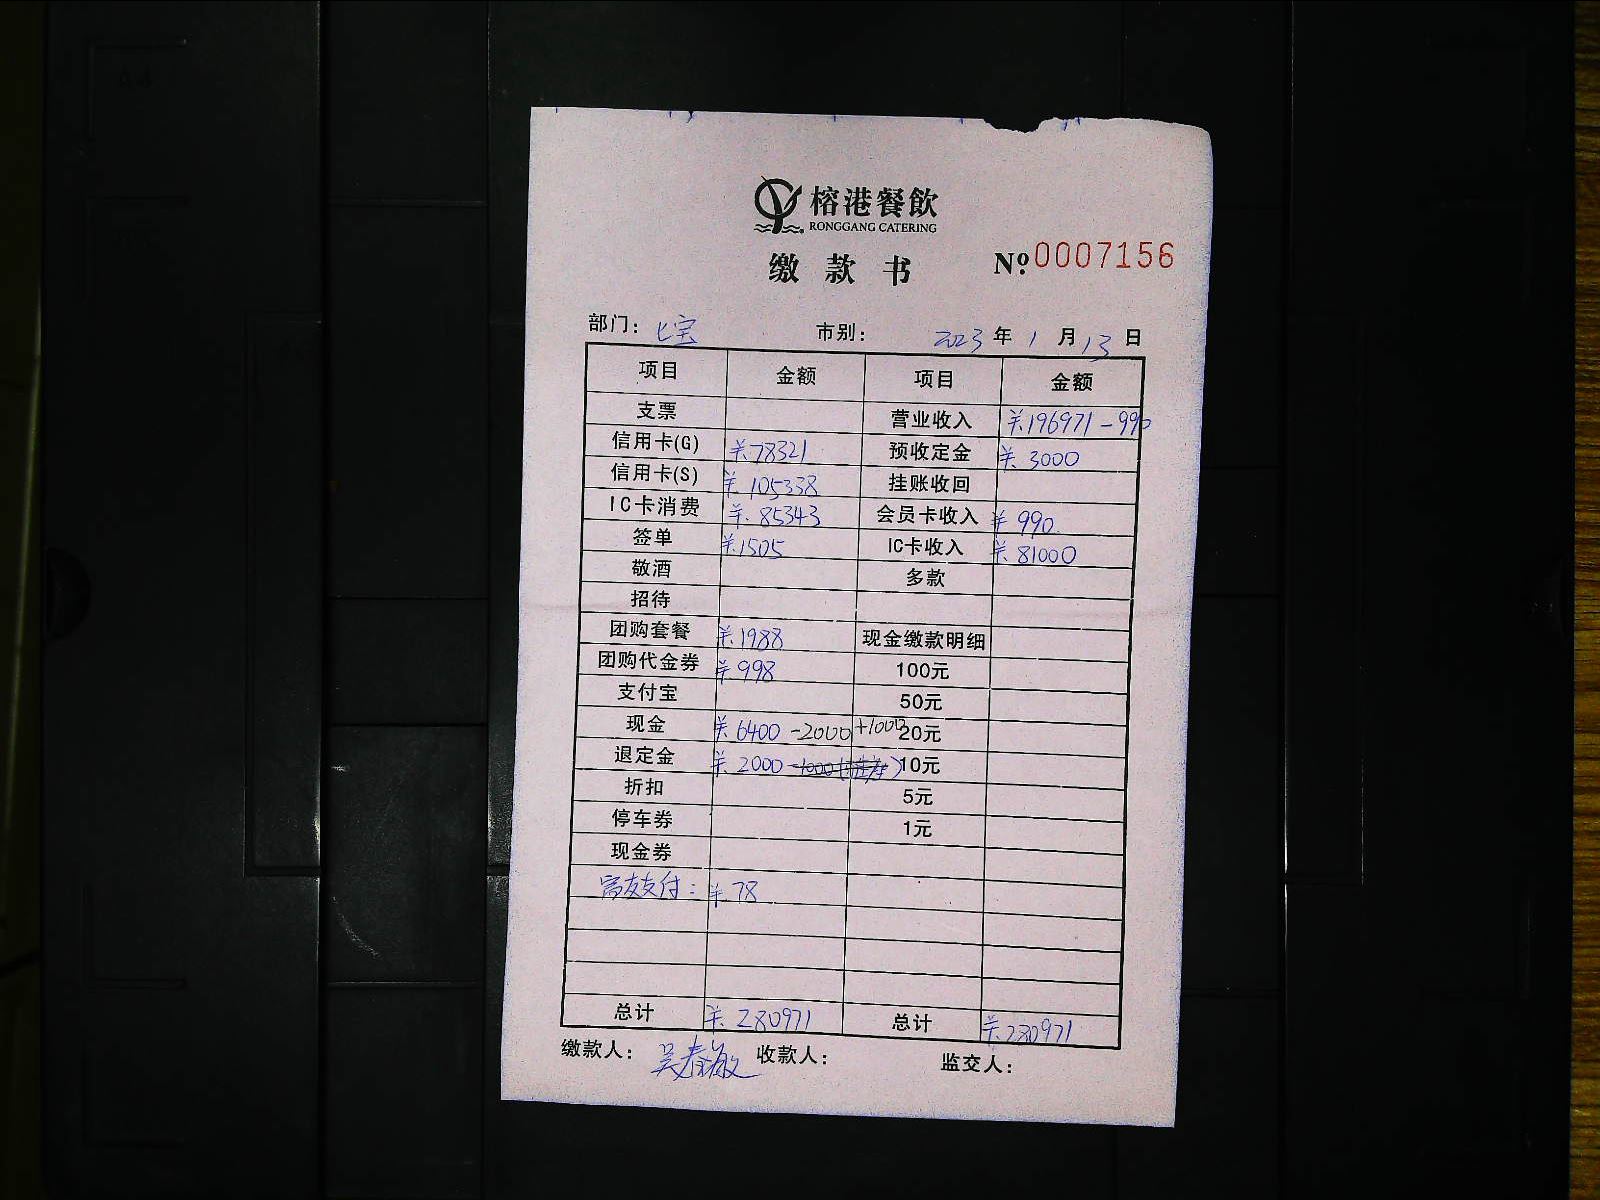 榕港餐飲
RONGGANG CATERING
缴款书 Nº:0007156
部门: 七宝 市别: 2023年1月13日
项目 金额 项目 金额
支票 营业收入 ¥196971-990
信用卡(G) ¥78321 预收定金 ¥3000
信用卡(S) ¥105338 挂账收回
IC卡消费 ¥85343 会员卡收入 ¥990
签单 ¥1505 IC卡收入 ¥81000
敬酒 多款
招待
团购套餐 ¥1988 现金缴款明细
团购代金券 ¥998 100元
支付宝 50元
现金 ¥6400-2000+1000 20元
退定金 ¥2000 10元
折扣 5元
停车券 1元
现金券
富友支付: ¥78
总计 ¥280971 总计 ¥280971
缴款人: 吴春敏 收款人: 监交人: